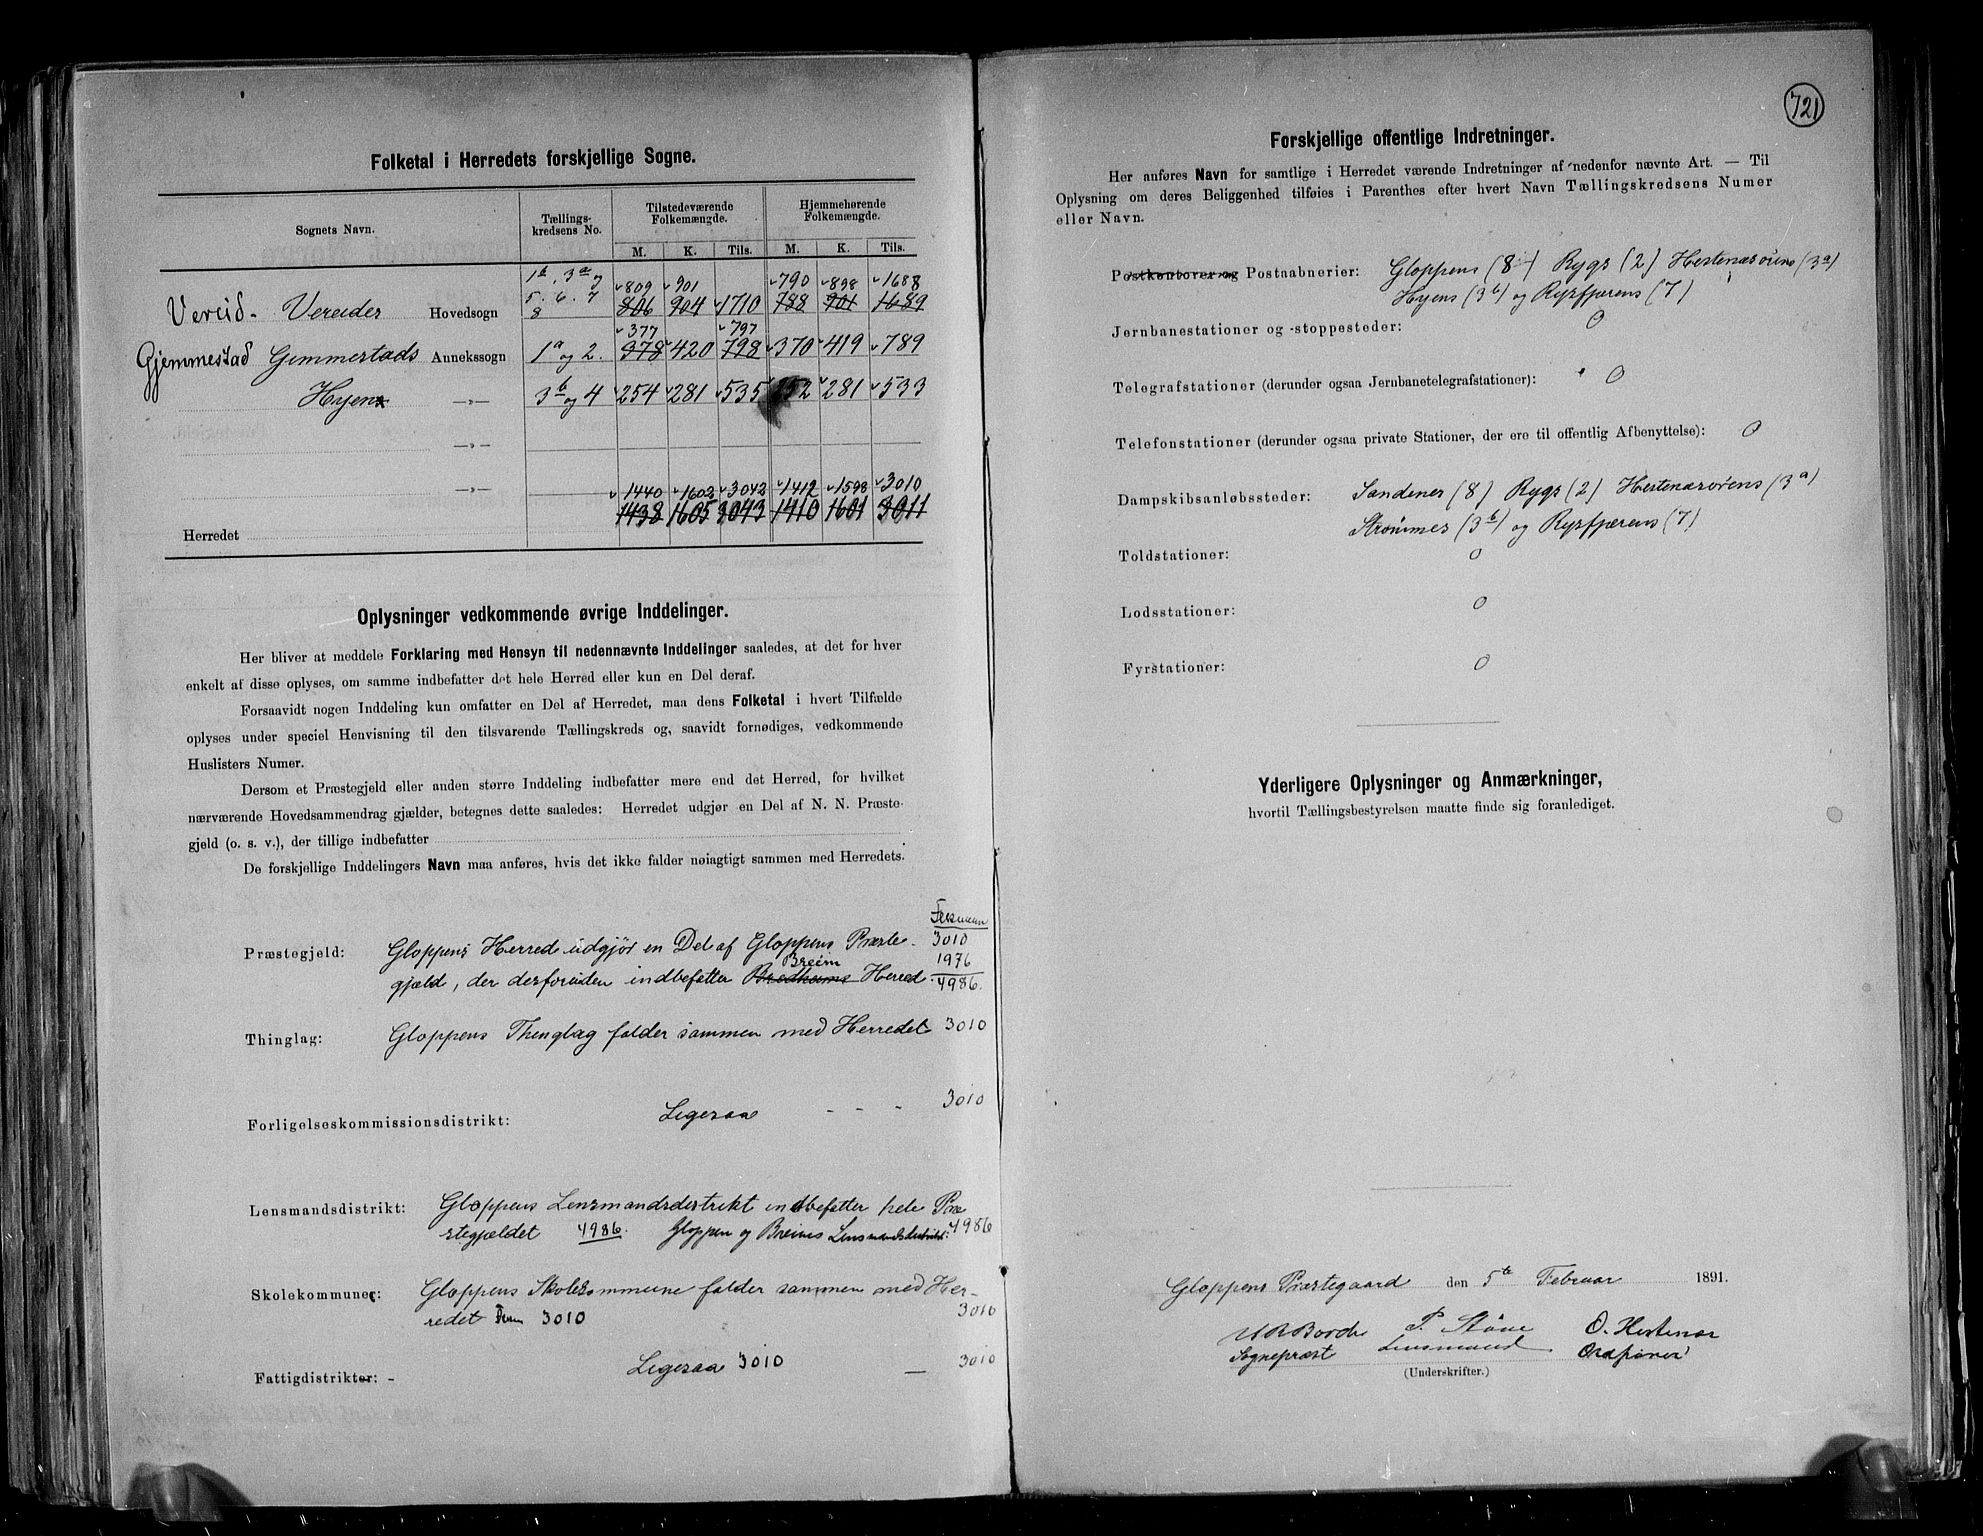 Folketal i Herredets forskjellige Sogne.
Sognets Navn. Tællings-kredsens No. Tilstedeværende Folkemængde. Hjemmehørende Folkemængde.
M. K. Tils. M. K. Tils.
1b. 3a og 809 901 790 898 1688
Vereid. Vereides Hovedsogn 5. 6. 7 8 806 904 1710 788 901 1689
377 797
Gjemmestad Gemmestads Annekssogn 1a og 2. 378 420 798 370 419 789
Hyens —„— 3b og 4 254 281 535 252 281 533
—„—
—„— 1440 1602 3042 1412 1598 3010
1438 1605 3043 1410 1601 3011
Herredet
Oplysninger vedkommende øvrige Inddelinger.
Her bliver at meddele Forklaring med Hensyn til nedennævnte Inddelinger saaledes, at det for hver
enkelt af disse oplyses, om samme indbefatter det hele Herred eller kun en Del deraf.
Forsaavidt nogen Inddeling kun omfatter en Del af Herredet, maa dens Folketal i hvert Tilfælde
oplyses under speciel Henvisning til den tilsvarende Tællingskreds og, saavidt fornødiges, vedkommende
Huslisters Numer.
Dersom et Præstegjeld eller anden større Inddeling indbefatter mere end det Herred, for hvilket
nærværende Hovedsammendrag gjælder, betegnes dette saaledes: Herredet udgjør en Del af N. N. Præste-
gjeld (o. s. v.), der tillige indbefatter
De forskjellige Inddelingers Navn maa anføres, hvis det ikke falder nøiagtigt sammen med Herredets.
Præstegjeld: Gloppens Herred udgjør en Del af Gloppens Præste- 3010
Breim 1976
gjæld, der desforuden indbefatter Bredheims Herred. 4986.
Thinglag: Gloppens Thinglag falder sammen med Herredet 3010
Forligelseskommissionsdistrikt: Ligesaa - - - 3010
Lensmandsdistrikt: Gloppens Lensmandsdistrikt indbefatter hele Præ
stegjældet 4986. Gloppen og Breims Lensmandsdistrikt: 4986
Skolekommuner: Gloppens Skolekommune falder sammen med Her-
redet 3010 3010
Fattigdistrikter: - Ligesaa 3010 — 3010
721
Forskjellige offentlige Indretninger.
Her anføres Navn for samtlige i Herredet værende Indretninger af nedenfor nævnte Art. — Til
Oplysning om deres Beliggenhed tilføies i Parenthes efter hvert Navn Tællingskredsens Numer
eller Navn.
Postkontorer og Postaabnerier: Gloppens (8) Rygs (2) Hestenæsørens (3a)
Hyens (3b) og Rysfjærens (7)
Jernbanestationer og -stoppesteder: 0
Telegrafstationer (derunder ogsaa Jernbanetelegrafstationer): 0
Telefonstationer (derunder ogsaa private Stationer, der ere til offentlig Afbenyttelse): 0
Dampskibsanløbssteder: Sandenes (8) Rygs (2) Hestenæsørens (3a)
Strømmes (3b) og Rysfjærens (7)
Toldstationer: 0
Lodsstationer: 0
Fyrstationer: 0
Yderligere Oplysninger og Anmærkninger,
hvortil Tællingsbestyrelsen maatte finde sig foranlediget.
Gloppens Præstegaard den 5te Februar 1891.
O. Hestenæs
Sognepræst Lensmand Ordfører
(Underskrifter.)